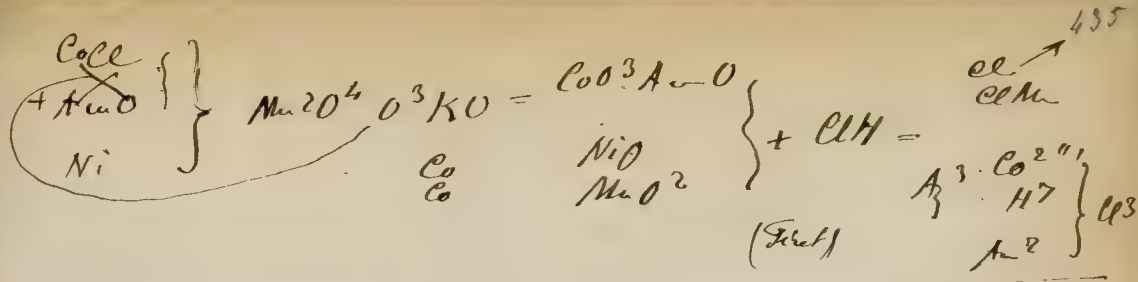 435
CoCl + AmO Ni } Mn2O4 O3KO = CoO3AmO NiO MnO2 } + ClH = Cl ClMn
Co
Co
Az3 Co2''' H7 Am2 } Cl3